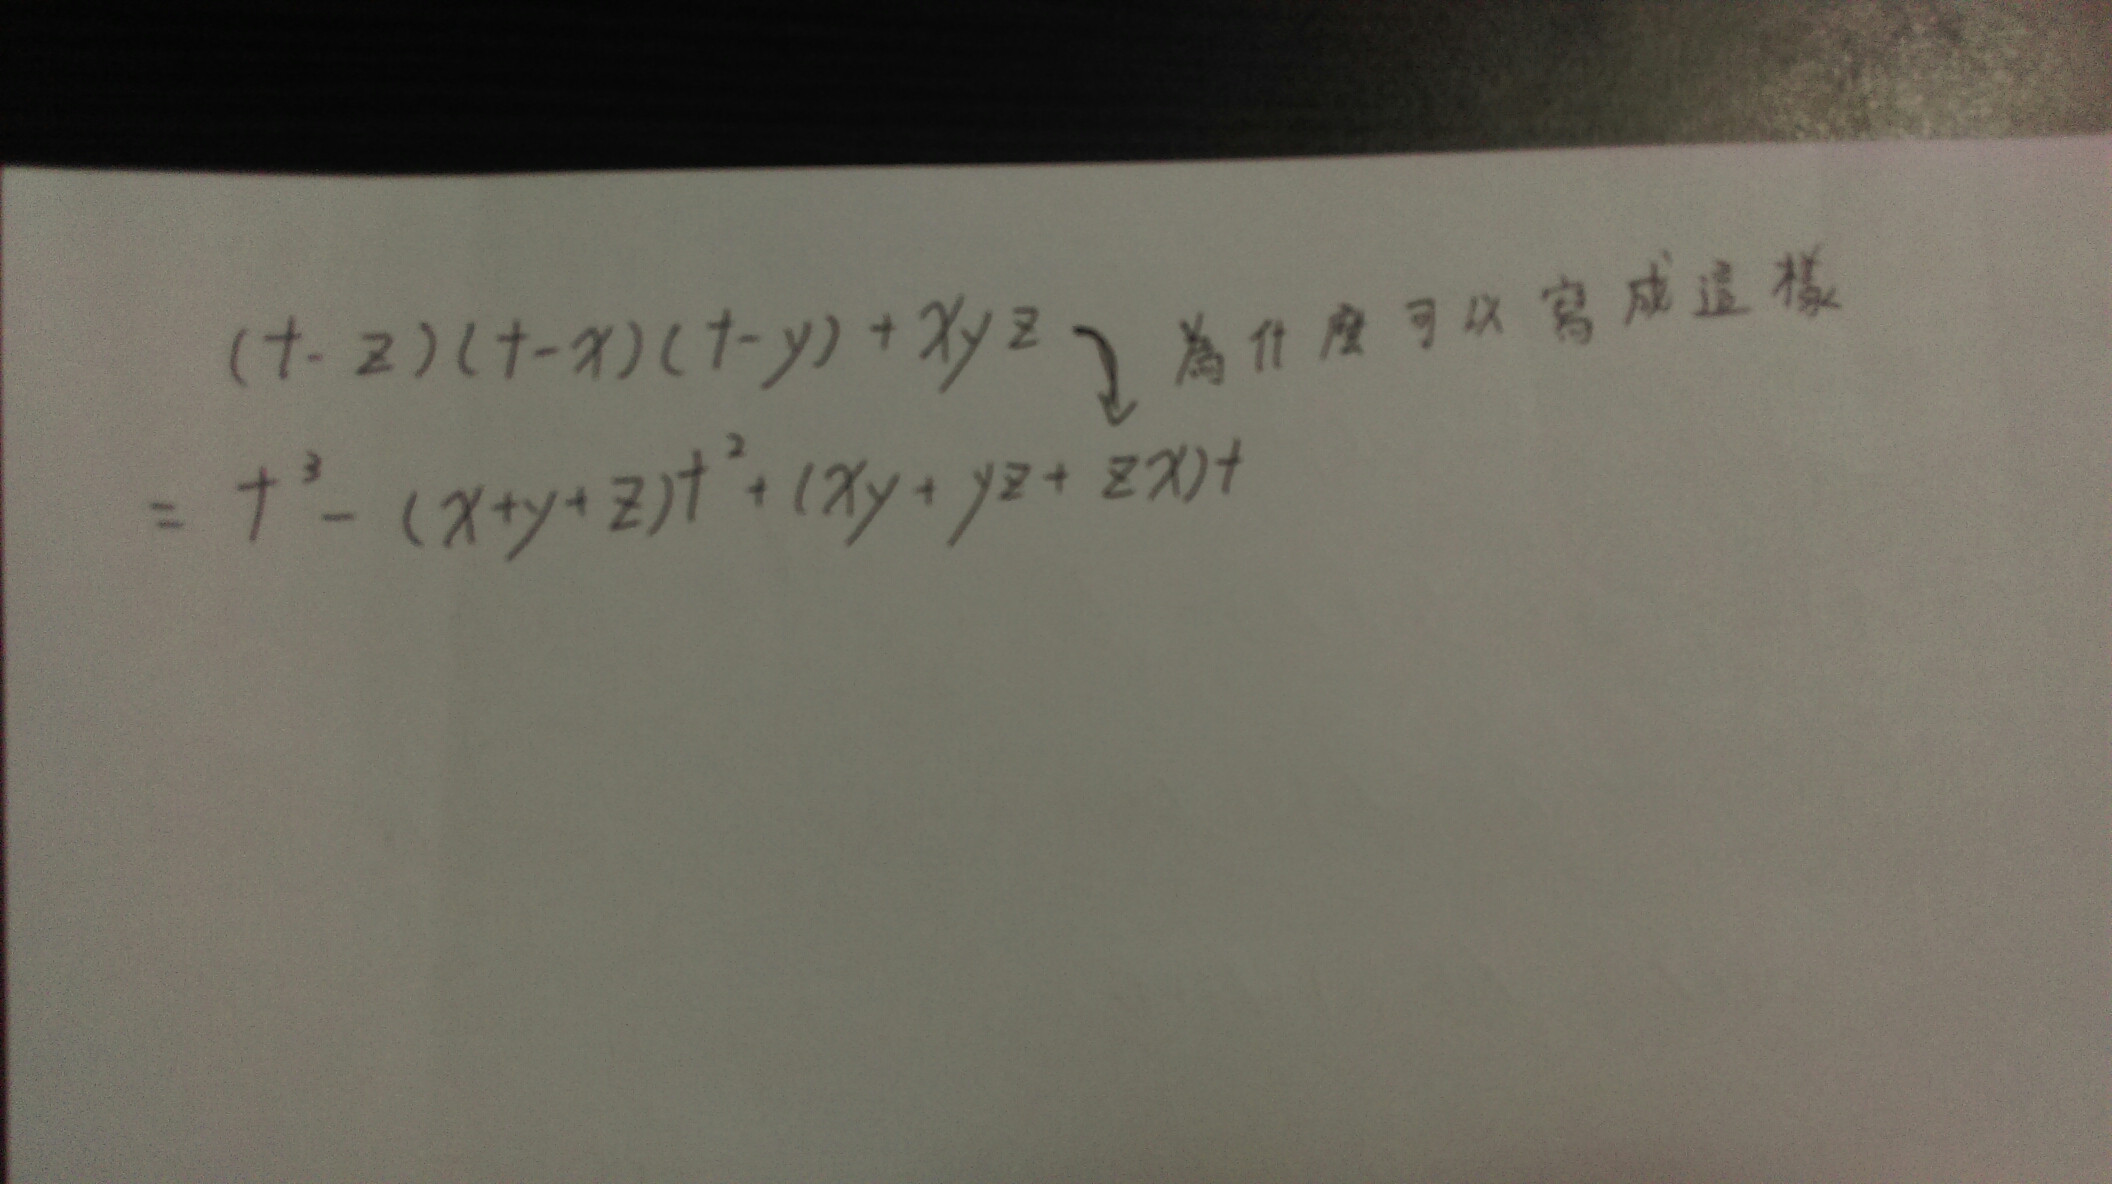 (t-z)(t-x)(t-y)+xyz 為什麼可以寫成這樣
= t³-(x+y+z)t²+(xy+yz+zx)t